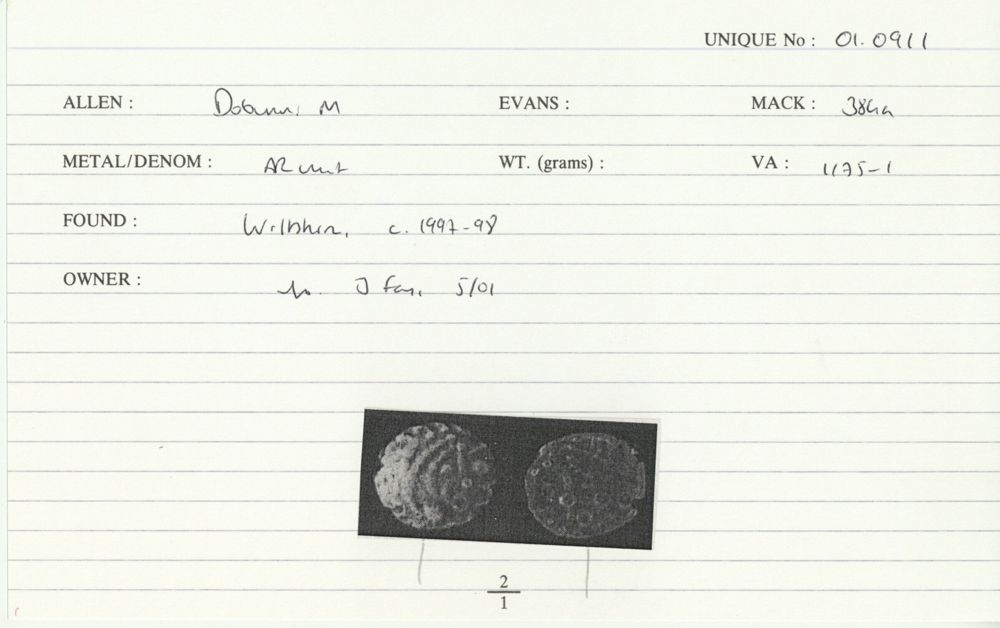 UNIQUE No : 01.0911
ALLEN : Dobunni M EVANS : MACK : 384a
METAL/DENOM : AR unit WT. (grams) : VA : 1175-1
FOUND : Wiltshire, c. 1997-98
OWNER : J 5/01
2
1